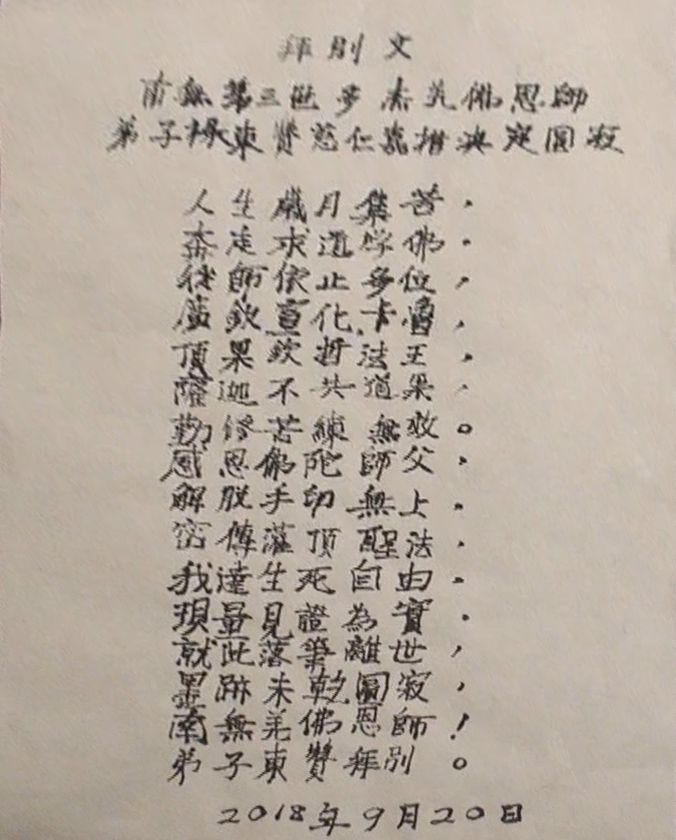 拜別文
南無第三世多杰羌佛恩師
弟子楊東贊慈仁嘉措決定圓寂
人生歲月集苦,
奔走求道學佛,
從師依止多位,
廣欽宣化卡魯,
頂果欽哲法王,
薩迦不共道果,
勤修苦練無效。
感恩佛陀師父,
解脫手印無上,
密傳灌頂醒法,
我達生死自由,
現量見證為實,
就此落筆離世,
墨跡未乾圓寂,
南無羌佛恩師!
弟子東贊拜別。
2018年9月20日